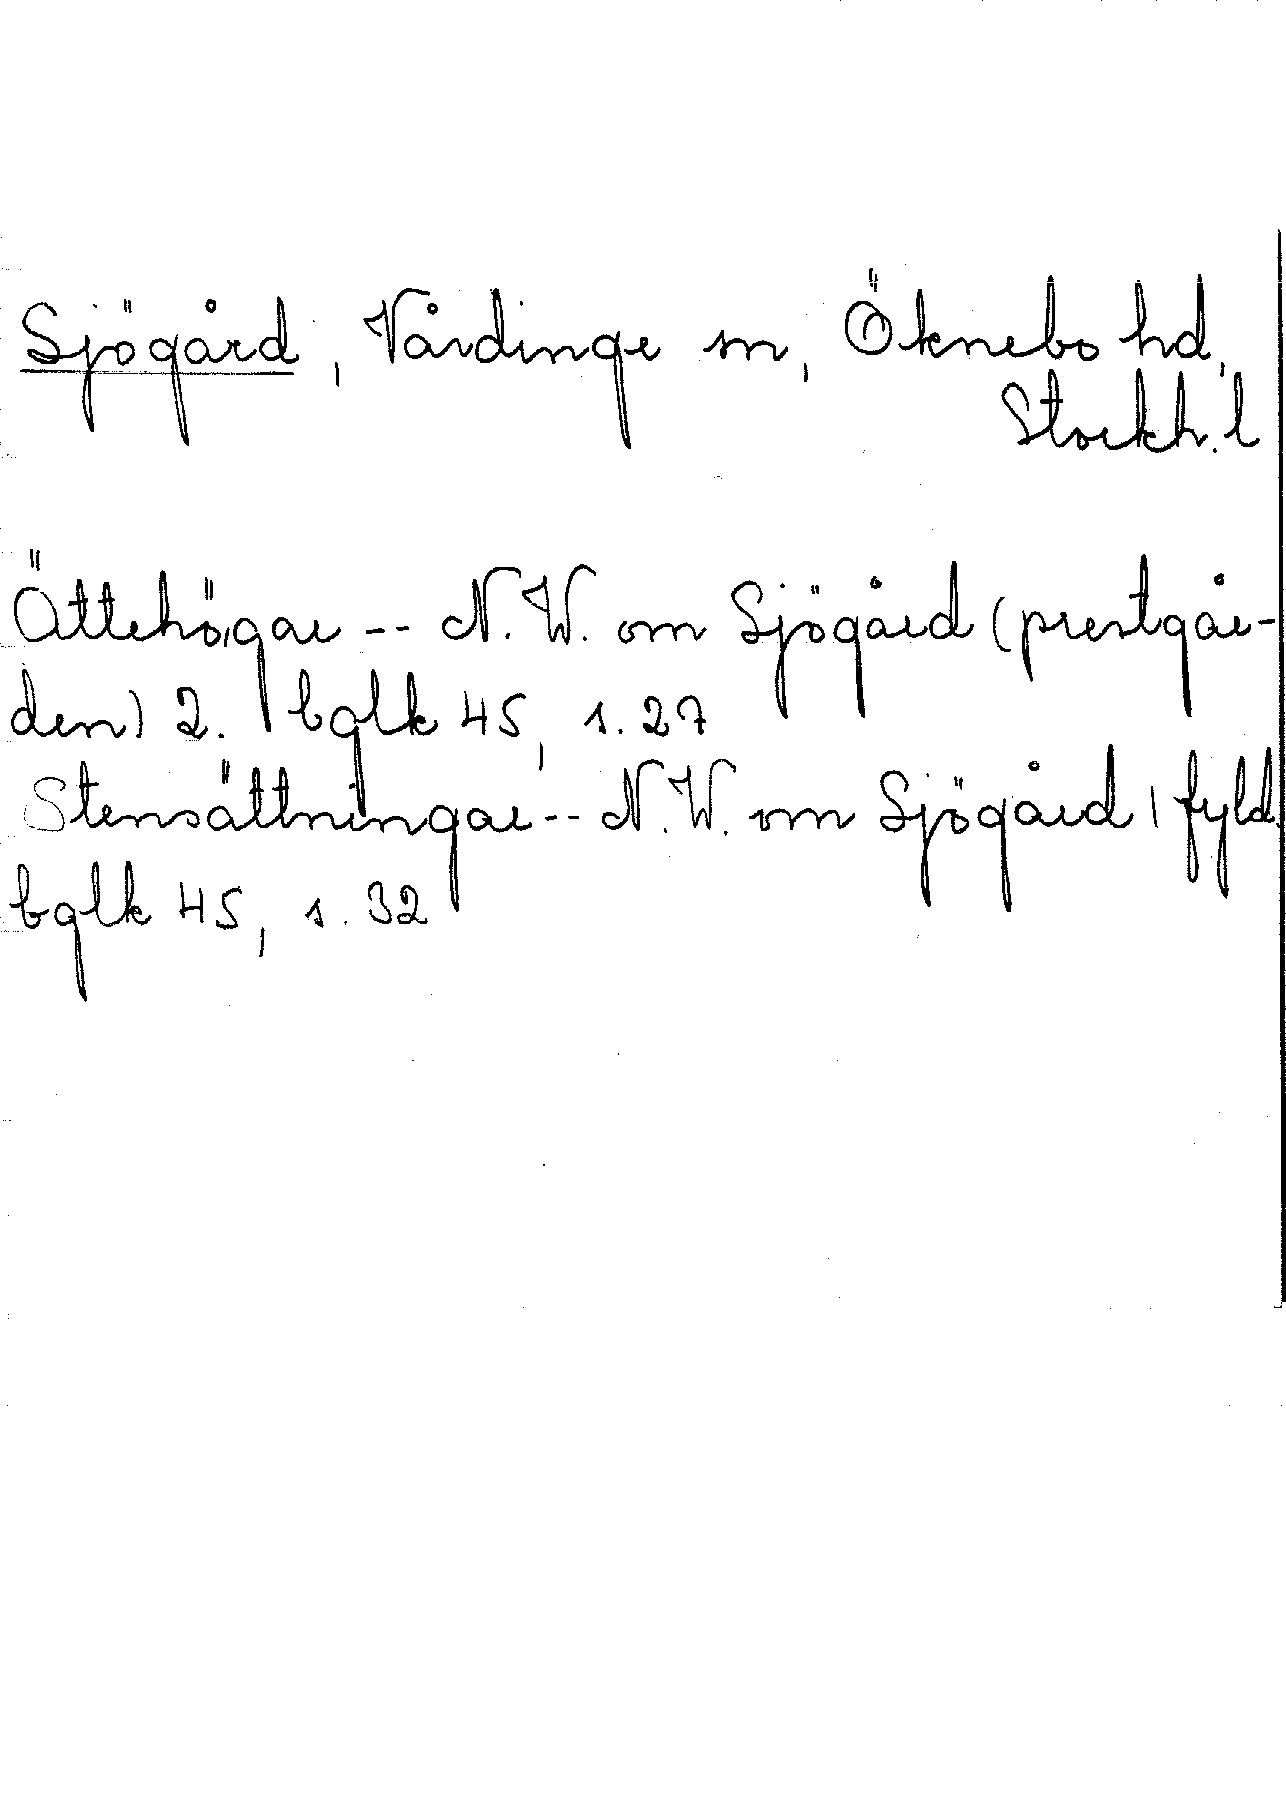 Sjögård, Vårdinge sn, Öknebo hd,
Stockh. l
Ättehögar -- N.W. om Sjögård (prestgår-
den) 2. bglk 45, s. 27
Stensättningar -- N.W. om Sjögård 1 fyld.
bglk 45, s. 32